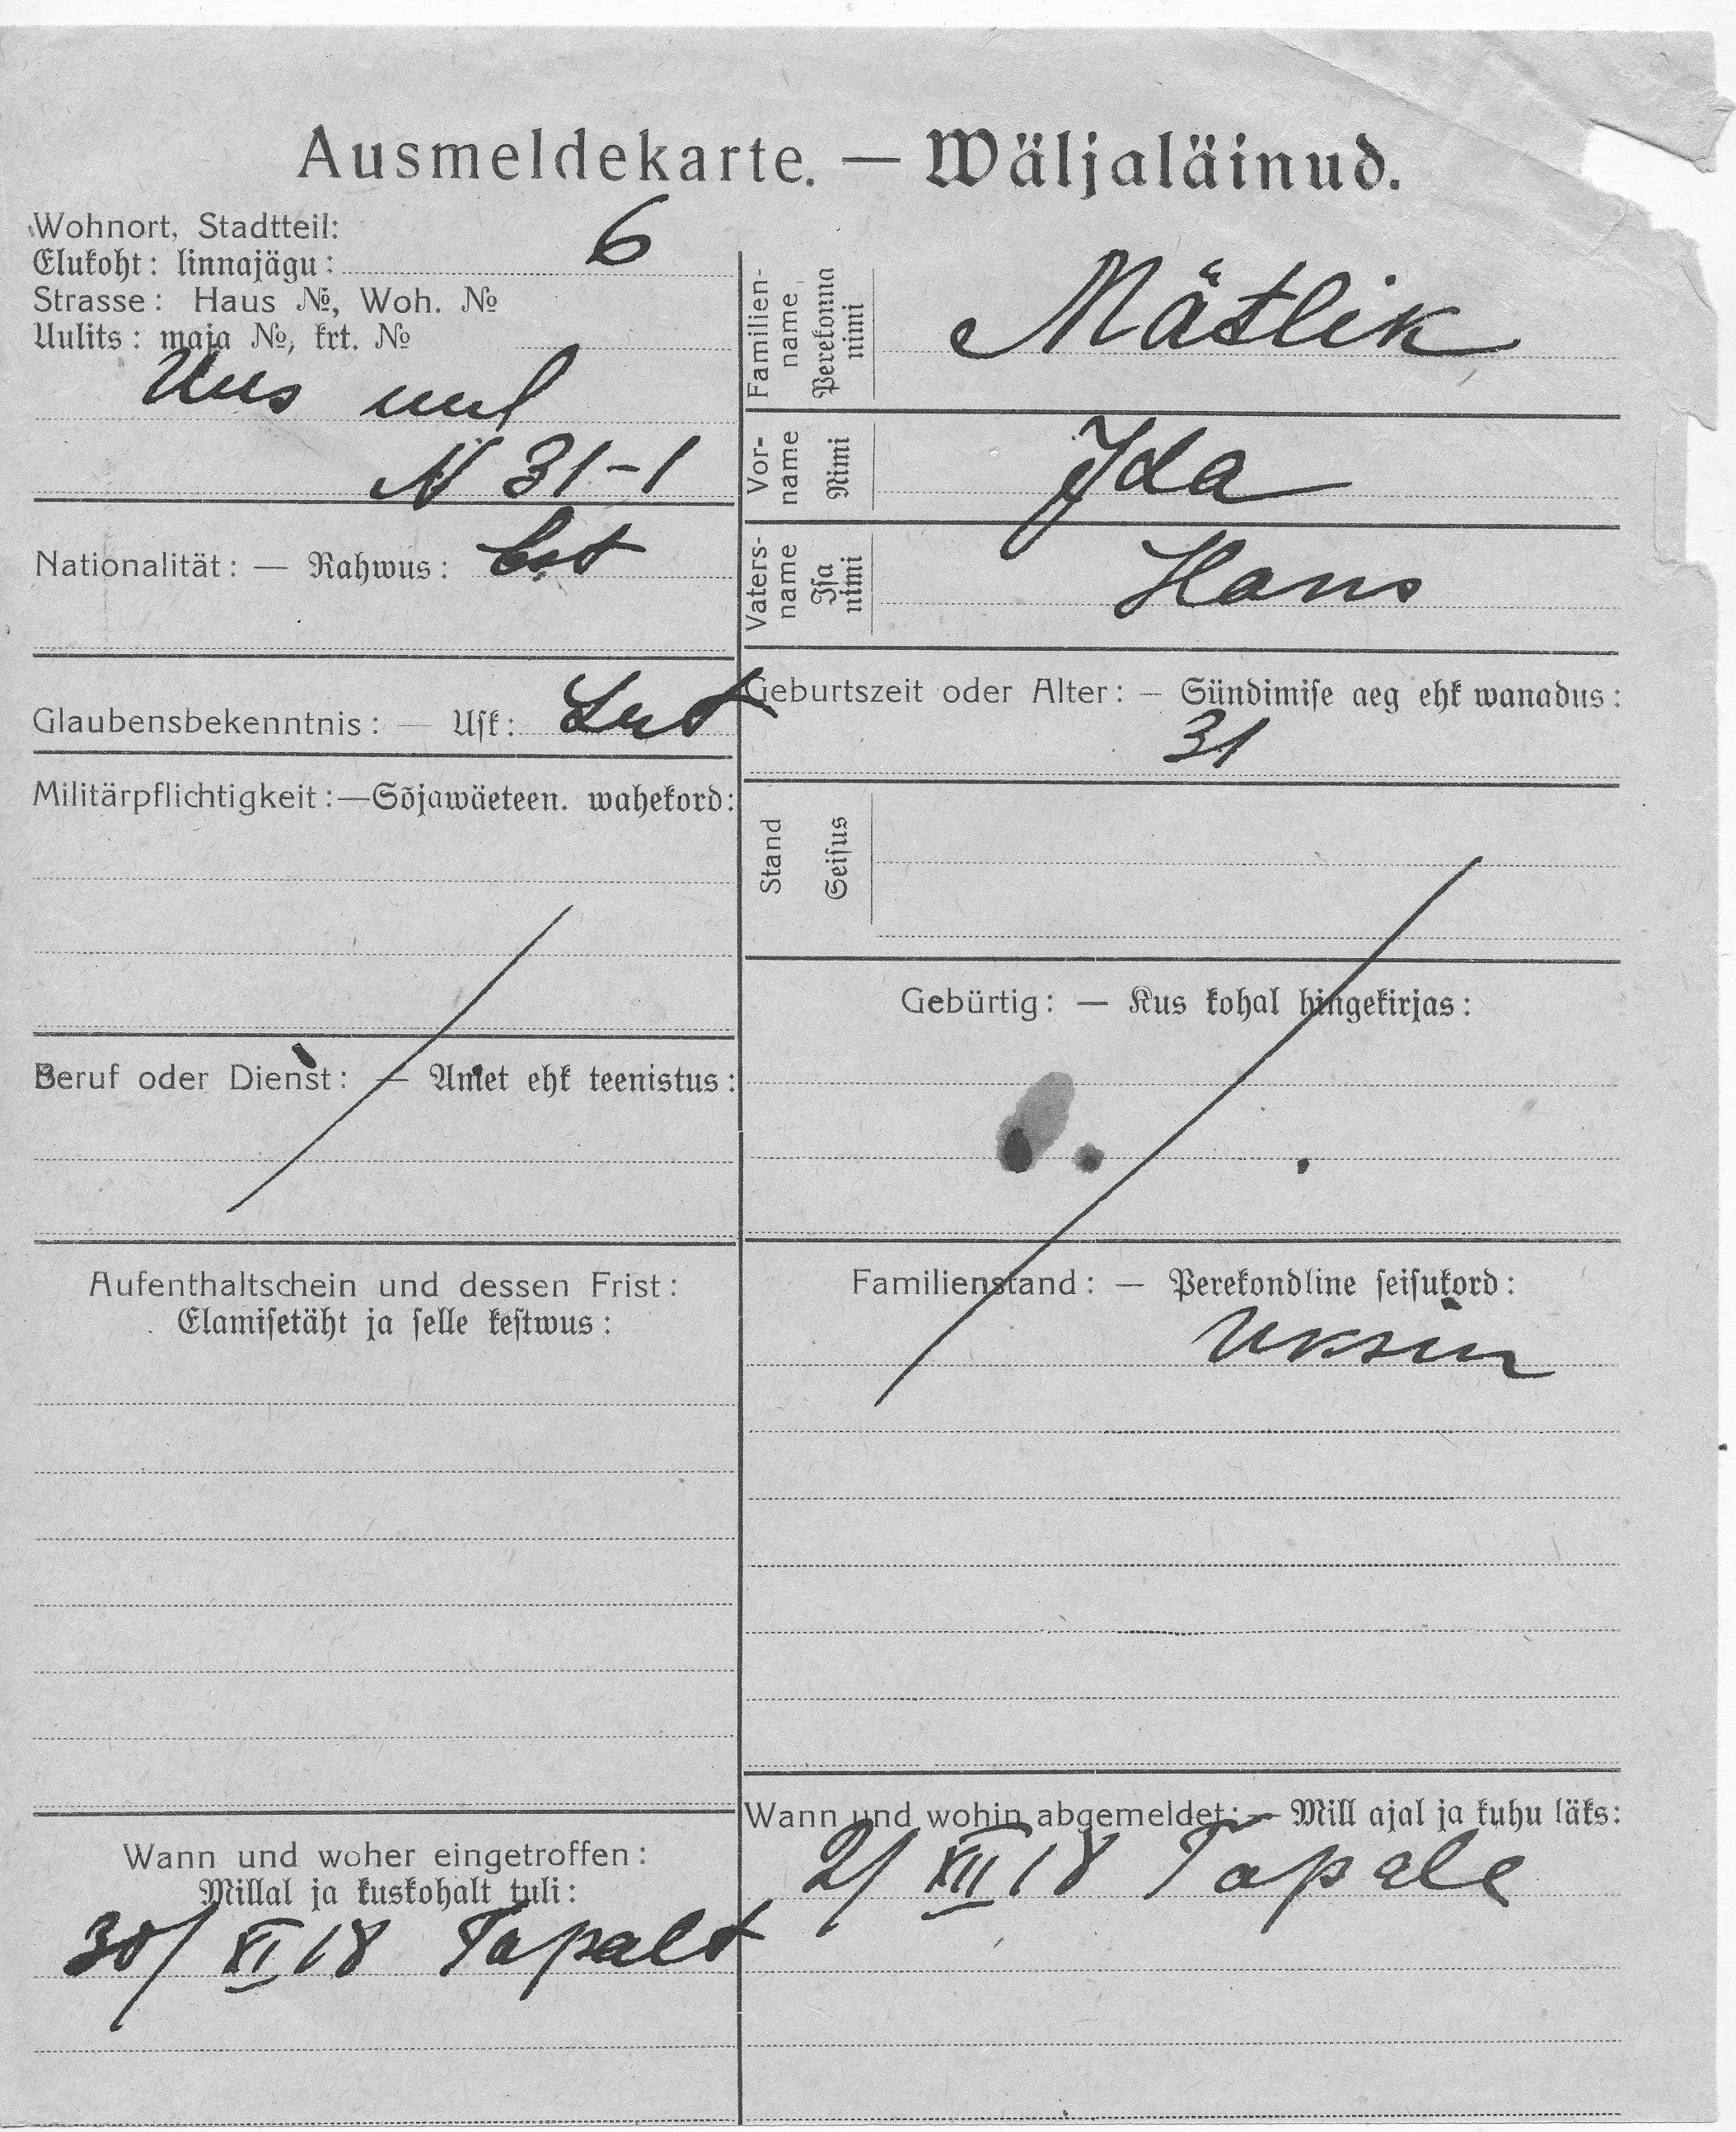 Ausmeldekarte. — Wäljaläinud.
Wohnort, Stadtteil:
Elukoht: linnajägu: 6
Strasse: Haus №, Woh. №
Uulits: maja №, krt. №
Uus uul
N 31-1
Nationalität: — Rahwus: Est
Glaubensbekenntnis: — Usk: Lut
Militärpflichtigkeit: — Sõjawäeteen. wahekord:
Beruf oder Dienst: — Amet ehk teenistus:
Aufenthaltschein und dessen Frist:
Elamisetäht ja selle kestwus:
Wann und woher eingetroffen:
Millal ja kuskohalt tuli:
30/XI 18 Tapalt
Familien-
name
Perekonna
nimi
Mätlik
Vor-
name
Nimi
Ida
Vaters-
name
Isa
nimi
Hans
Geburtszeit oder Alter: — Sündimise aeg ehk wanadus:
31
Stand
Seisus
Gebürtig: — Kus kohal hingekirjas:
Familienstand: — Perekondline seisukord:
Wann und wohin abgemeldet: — Mill ajal ja kuhu läks:
2/XII 18 Tapale